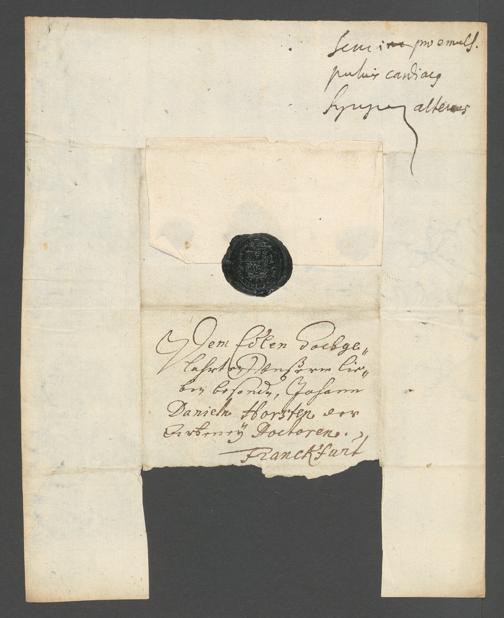 Semina pro emuls.
pulvis cardiac9
Syrup9 altens
Dem Edlen Hochge„
lahrten Unserm lie„
ben besondn, Johann
Daniels Horsten der
Artzeney Doctoren.
Franckfurt